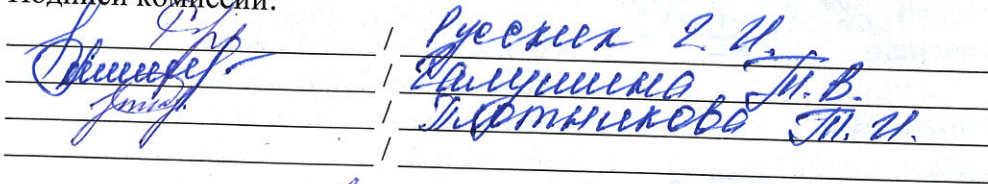 Подписи комиссии:
/ Русских Г. И.
/ Галушина Т. В.
/ Плотникова Т. И.
/